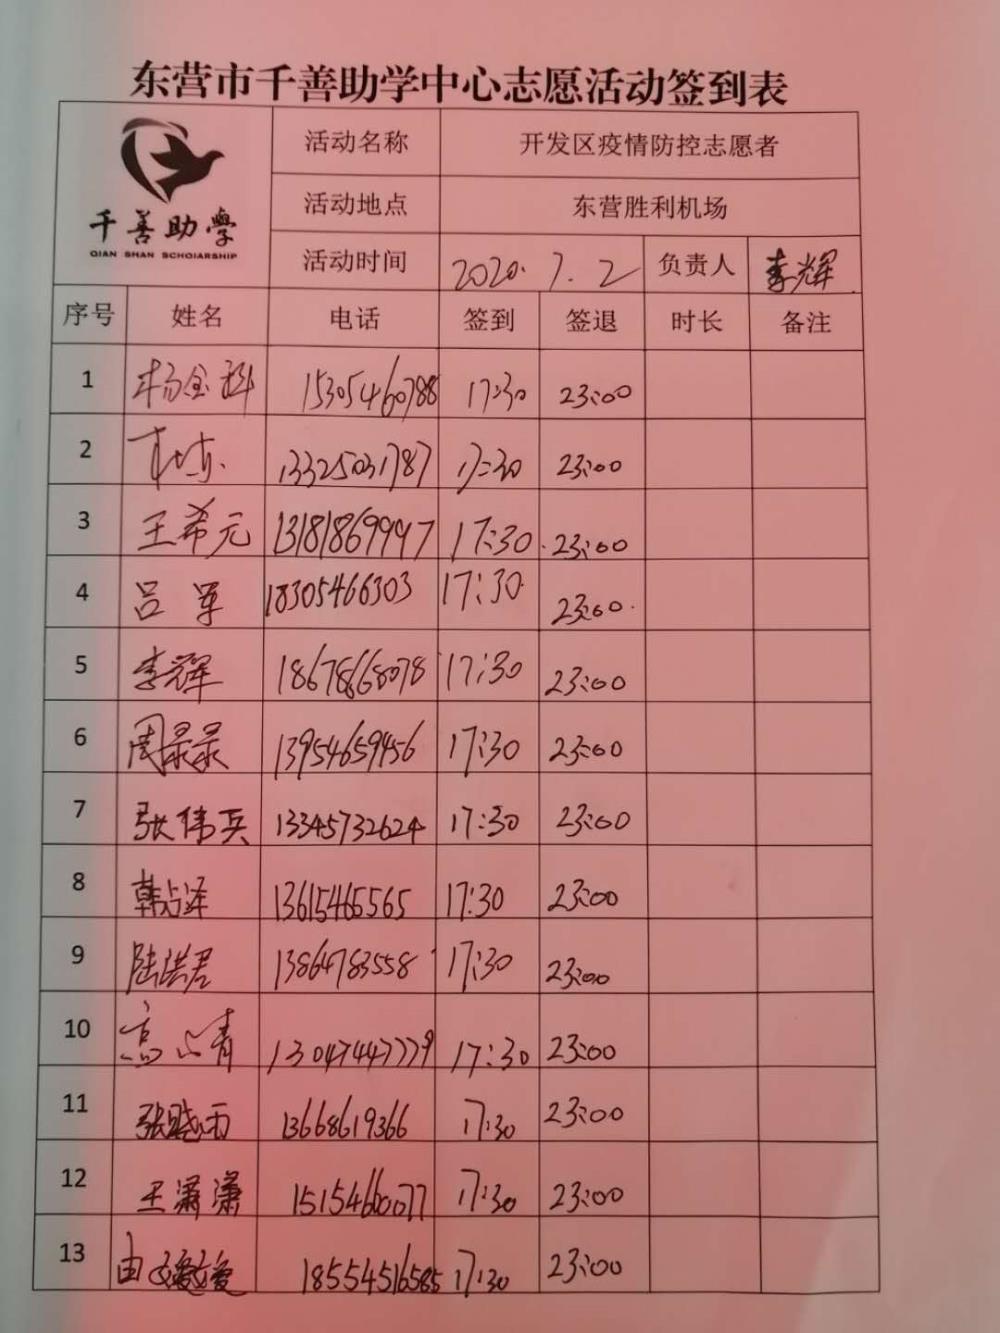 东营市千善助学中心志愿活动签到表
千善助學
QIAN SHAN SCHOIARSHIP
活动名称 开发区疫情防控志愿者
活动地点 东营胜利机场
活动时间 2020.7.2 负责人 李辉
序号 姓名 电话 签到 签退 时长 备注
1 杨金科 15305460788 17:30 23:00
2 13325031787 17:30 23:00
3 王希元 13181869997 17:30 23:00
4 吕军 18305466303 17:30 23:00
5 李辉 18678668078 17:30 23:00
6 周录录 13954659456 17:30 23:00
7 张伟兵 13345732624 17:30 23:00
8 韩占泽 13615465565 17:30 23:00
9 陆洪君 13864783558 17:30 23:00
10 13047447779 17:30 23:00
11 张晓雨 13668619366 17:30 23:00
12 王潇潇 15154660077 17:30 23:00
13 由 18554516585 17:30 23:00